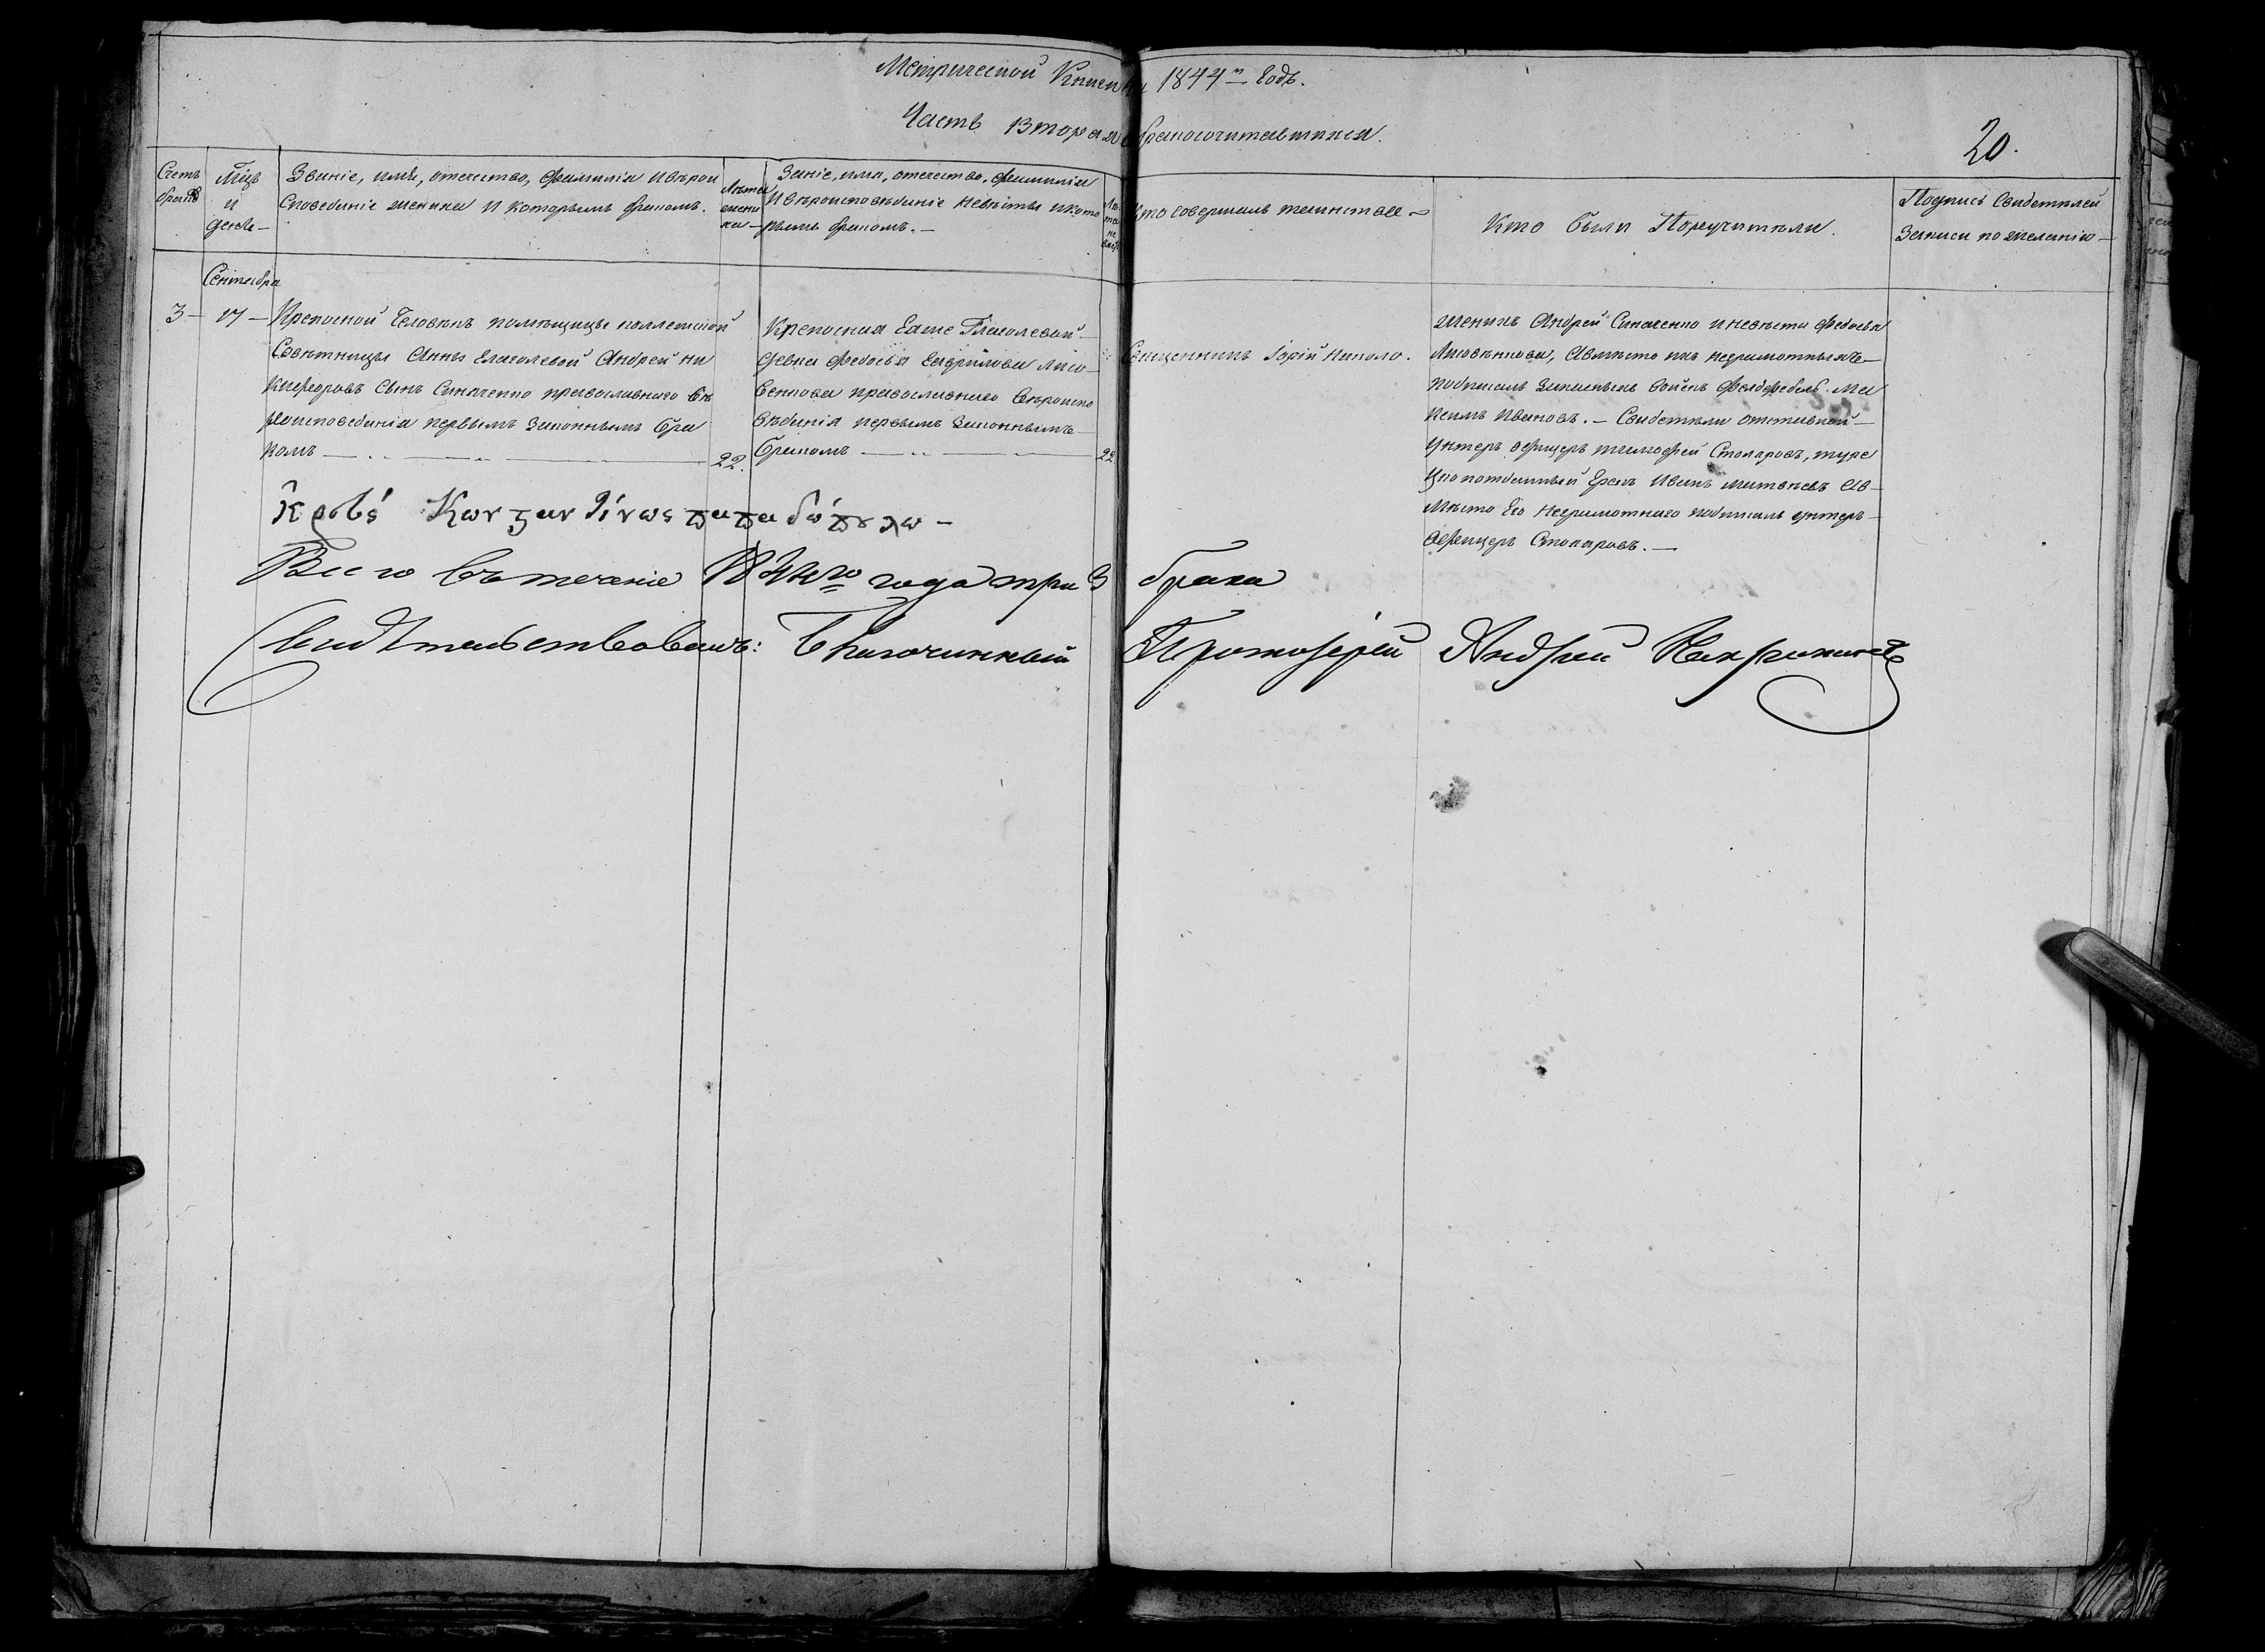 Метрической Книги на 1844й Годъ.
Часть Вторая о бракосочитавшихся.
20.
Счетъ браковъ
Мцъ и день
Званіе, имя, отечество, фамилія и вѣрои
споведаніе жениха и которымъ бракомъ.
Лѣта жени ха
Званіе, имя, отечество, фамилія
и вѣроисповѣданіе невѣсты и кото
рымъ бракомъ.
Лѣ та не вѣсты
Кто совершалъ таинство
Кто были Поручители.
Подпись свидетелей
записи по желанію
Сентября
3 17
Крепосной человѣкъ помѣщицы коллежской
Совѣтницы Анны Глаголевой Андрей Ни
кифоровъ сынъ Синаченко православнаго вѣ
роисповеданія первымъ законнымъ бра
комъ 22.
Крепосная Еяже Глаголевой
девка Федосья Гаврилова
православнаго вѣроиспо
вѣданія первымъ законнымъ
бракомъ 22
Священникъ Горій Николо.
женихъ Андрей Синаченко и невѣста Федосья
а вмѣсто ихъ неграмотныхъ
подписалъ Фелдфебель Ма
ксимъ Ивановъ. Свидетели отставной
унтеръ офицеръ тимофей Столяровъ, туре
цко потданный Грекъ Иванъ матвѣевъ а в
мѣсто Его неграмотнаго подписалъ унтеръ
офицеръ Столяровъ.
ἱερεύς Κωνσταντίνως παπαδόπουλω
Всего въ теченіе 1844го года три 3 брака
Свидѣтельствовалъ: Благочинный Протоіерей Андрей